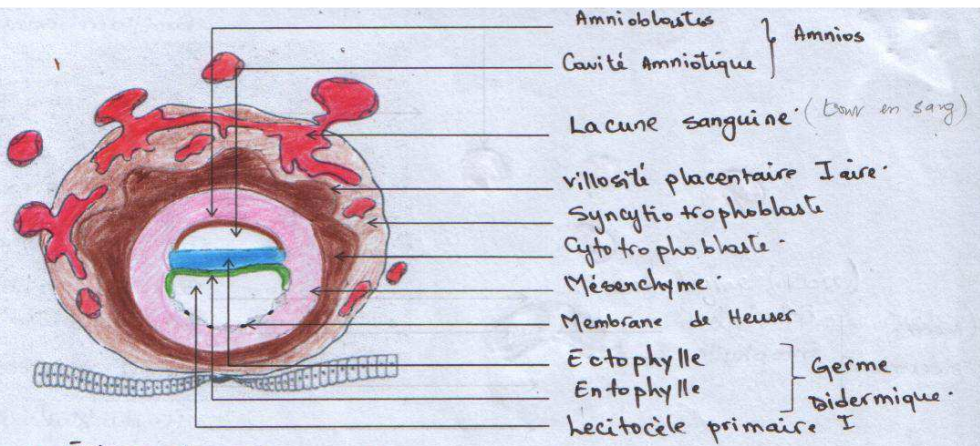 Amnioblastes
Cavité Amniotique
Amnios
Lacune sanguine (en sang)
villosité placentaire I aire.
Syncytio trophoblaste
Cyto trophoblaste.
Mésenchyme.
Membrane de Heuser
Ectophylle
Entophylle
Germe
Didermique.
Lecitocèle primaire I